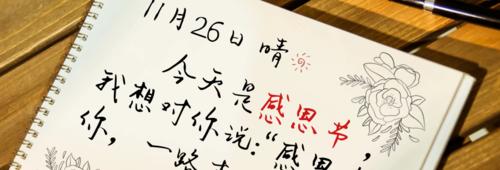 11月26日 晴
今天是感恩节，
我想对你说：“感恩
你，一路